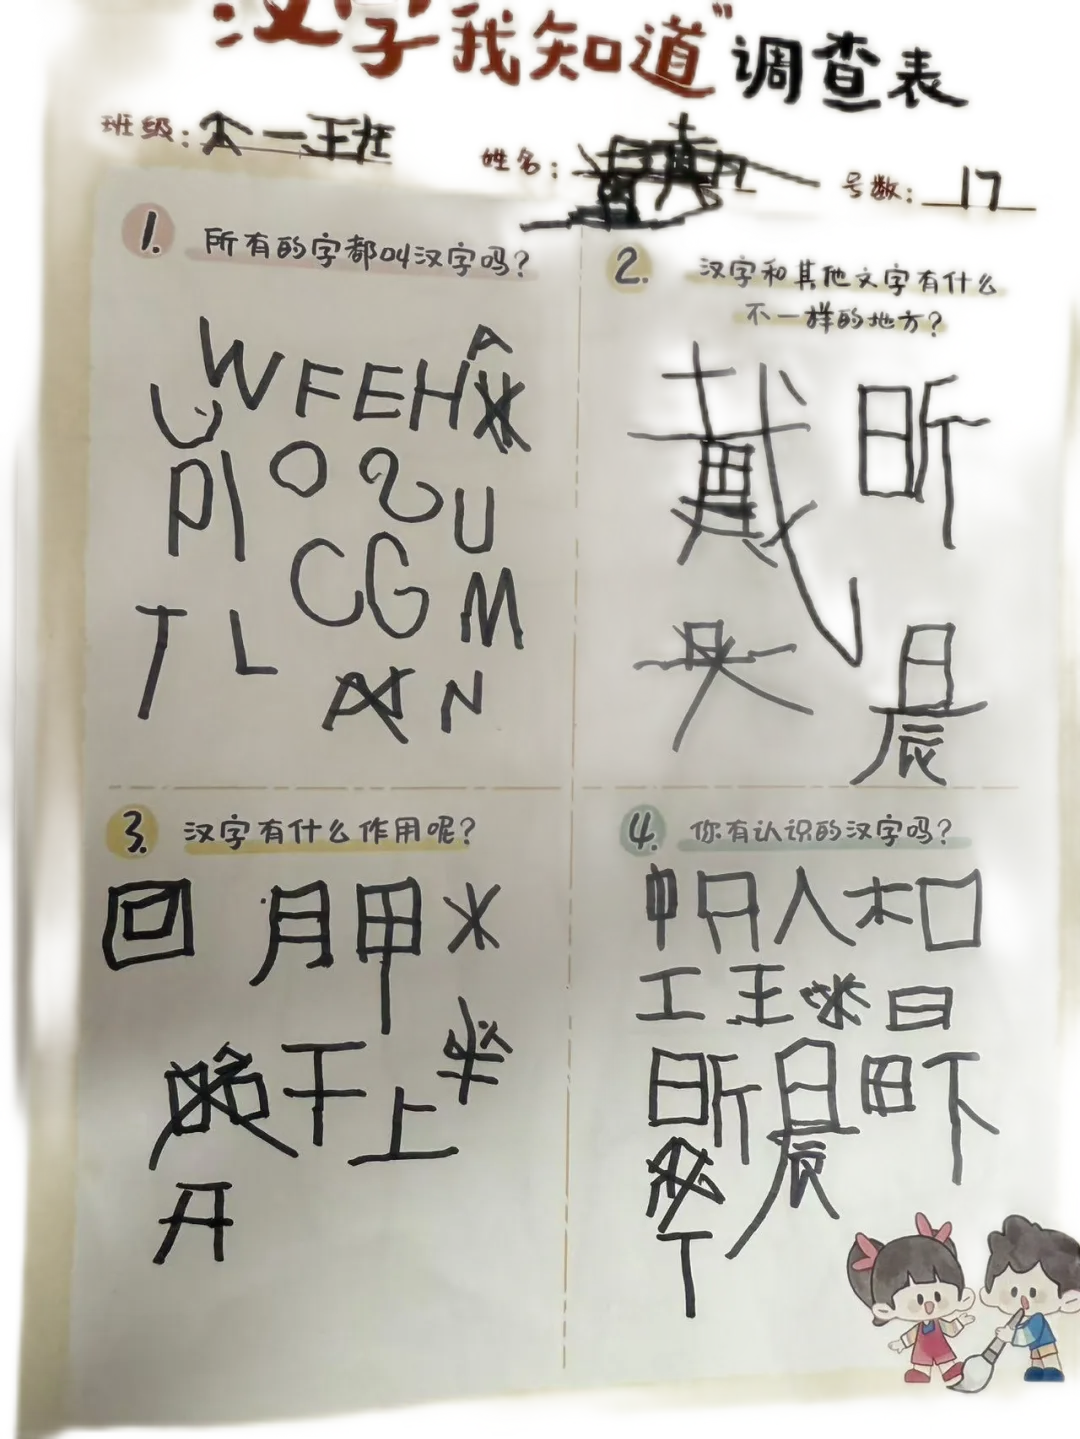 汉字我知道”调查表
班级: 大一班 姓名: 号数: 17
1. 所有的字都叫汉字吗?
A
W F E E H
U
P I O 2 U
C G M
T L N
2. 汉字和其他文字有什么
不一样的地方?
戴 昕
昊 晨
3. 汉字有什么作用呢?
回 月 甲
干 上
开
4. 你有认识的汉字吗?
中 只 人 木 口
工 王 日
昕 晨 田 下
丁